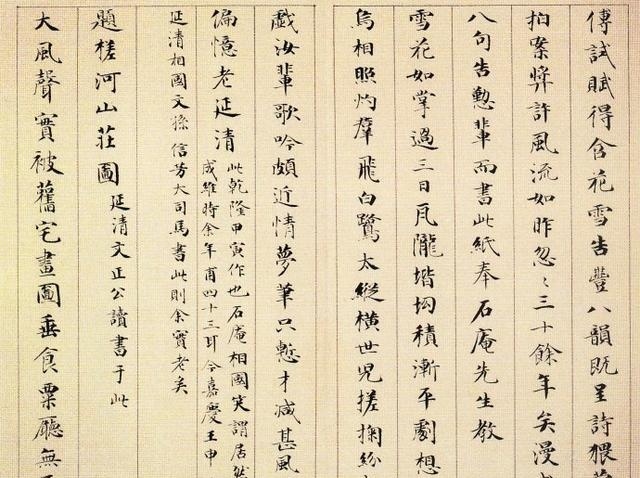 傳試賦得含花雪告豐八韻既呈詩猥
拍案獎許風流如昨忽〻三十餘年矣漫
八句告勲輩而書此紙奉石庵先生教
雪花如掌過三日瓦隴堦坳積漸平劇想
烏相照灼羣飛白鷺太縱橫世児搓掬紛
戲汝輩歌吟頗近情夢筆只慙才減甚風
偏憶老延清
此乾隆甲寅作也石庵相國笑謂居然
成雅時余年甫四十三耳今嘉慶壬申
延清相國文孫信芳大司馬書此則余實老矣
題槎河山莊圖 延清文正公讀書于此
大風聲實被舊宅畫圖垂食粟廳無